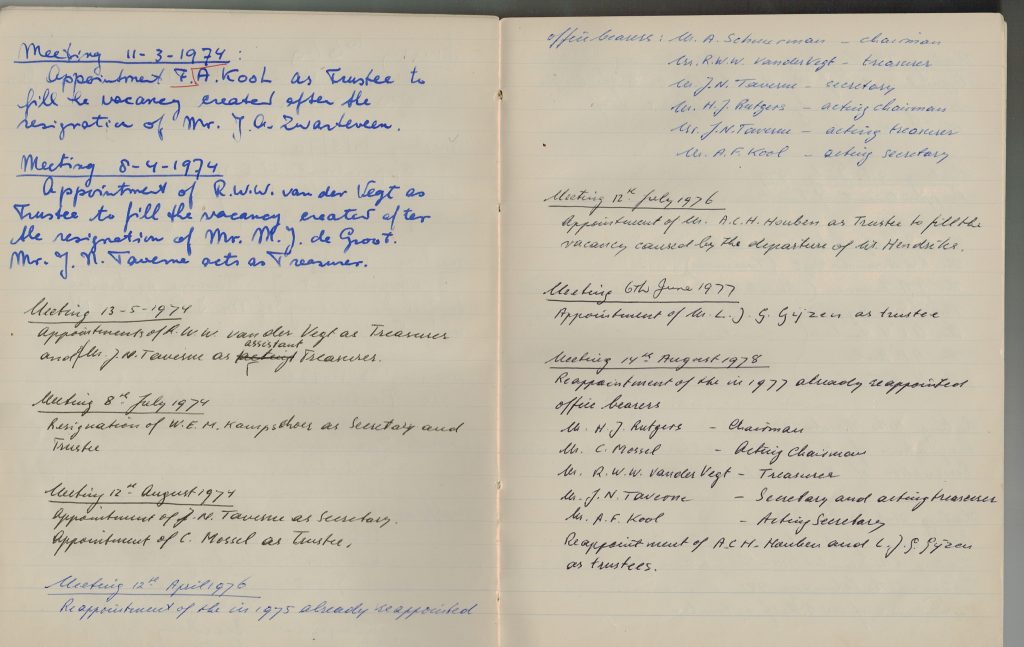 Meeting 11-3-1974:
Appointment F.A. Kool as Trustee to
fill the vacancy created after the
resignation of Mr. J.A. Zwarteveen.
Meeting 8-4-1974
Appointment of R.W.W. van der Vegt as
Trustee to fill the vacancy created after
the resignation of Mr. M.J. de Groot.
Mr. J.N. Taverne acts as Treasurer.
Meeting 13-5-1974
Appointments of R.W.W. van der Vegt as Treasurer
assistant
and Mr. J.N. Taverne as acting Treasurer.
Meeting 8th July 1974
Resignation of W.E.M. Kampschoer as Secretary and
Trustee
Meeting 12th August 1974
Appointment of J.N. Taverne as Secretary.
Appointment of C. Mossel as Trustee.
Meeting 12th April 1976
Reappointment of the in 1975 already reappointed
office bearers: Mr. A. Schuurman - chairman
Mr. R.W.W. van der Vegt - treasurer
Mr. J.N. Taverne - secretary
Mr. H.J. Rutgers - acting chairman
Mr. J.N. Taverne - acting treasurer
Mr. A.F. Kool - acting secretary
Meeting 12th July 1976
Appointment of Mr. A.C.H. Houben as Trustee to fill the
vacancy caused by the departure of W. Hendriks.
Meeting 6th June 1977
Appointment of Mr. L.J.G. Gijzen as trustee
Meeting 14th August 1978
Reappointment of the in 1977 already reappointed
office bearers
Mr. H.J. Rutgers - Chairman
Mr. C. Mossel - Acting Chairman
Mr. R.W.W. van der Vegt - Treasurer
Mr. J.N. Taverne - Secretary and acting treasurer
Mr. A.F. Kool - Acting Secretary
Reappointment of A.C.H. Houben and L.J.G. Gijzen
as trustees.